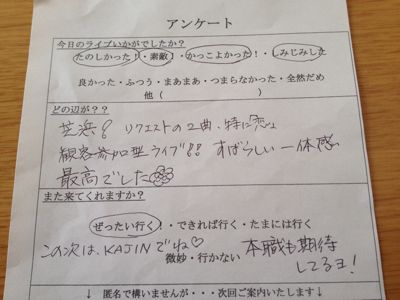 アンケート
今日のライブいかがでしたか?
たのしかった!・素敵!・かっこよかった!・しみじみした
良かった・ふつう・まあまあ・つまらなかった・全然だめ
他(　　　　　　)
どの辺が??
芝浜? リクエストの2曲、特に恋よ
観客参加型ライブ!! すばらしい一体感
最高でした
また来てくれますか?
ぜったい行く!・できれば行く・たまには行く
微妙・行かない
この次は、KAJINでね♡ 本職も期待
してるヨ!
↓ 匿名で構いませんが・・・次回ご案内いたします↓